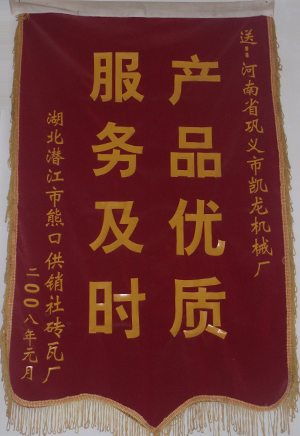 送：河南省巩义市凯龙机械厂
产品优质
服务及时
湖北潜江市熊口供销社砖瓦厂
二00八年元月